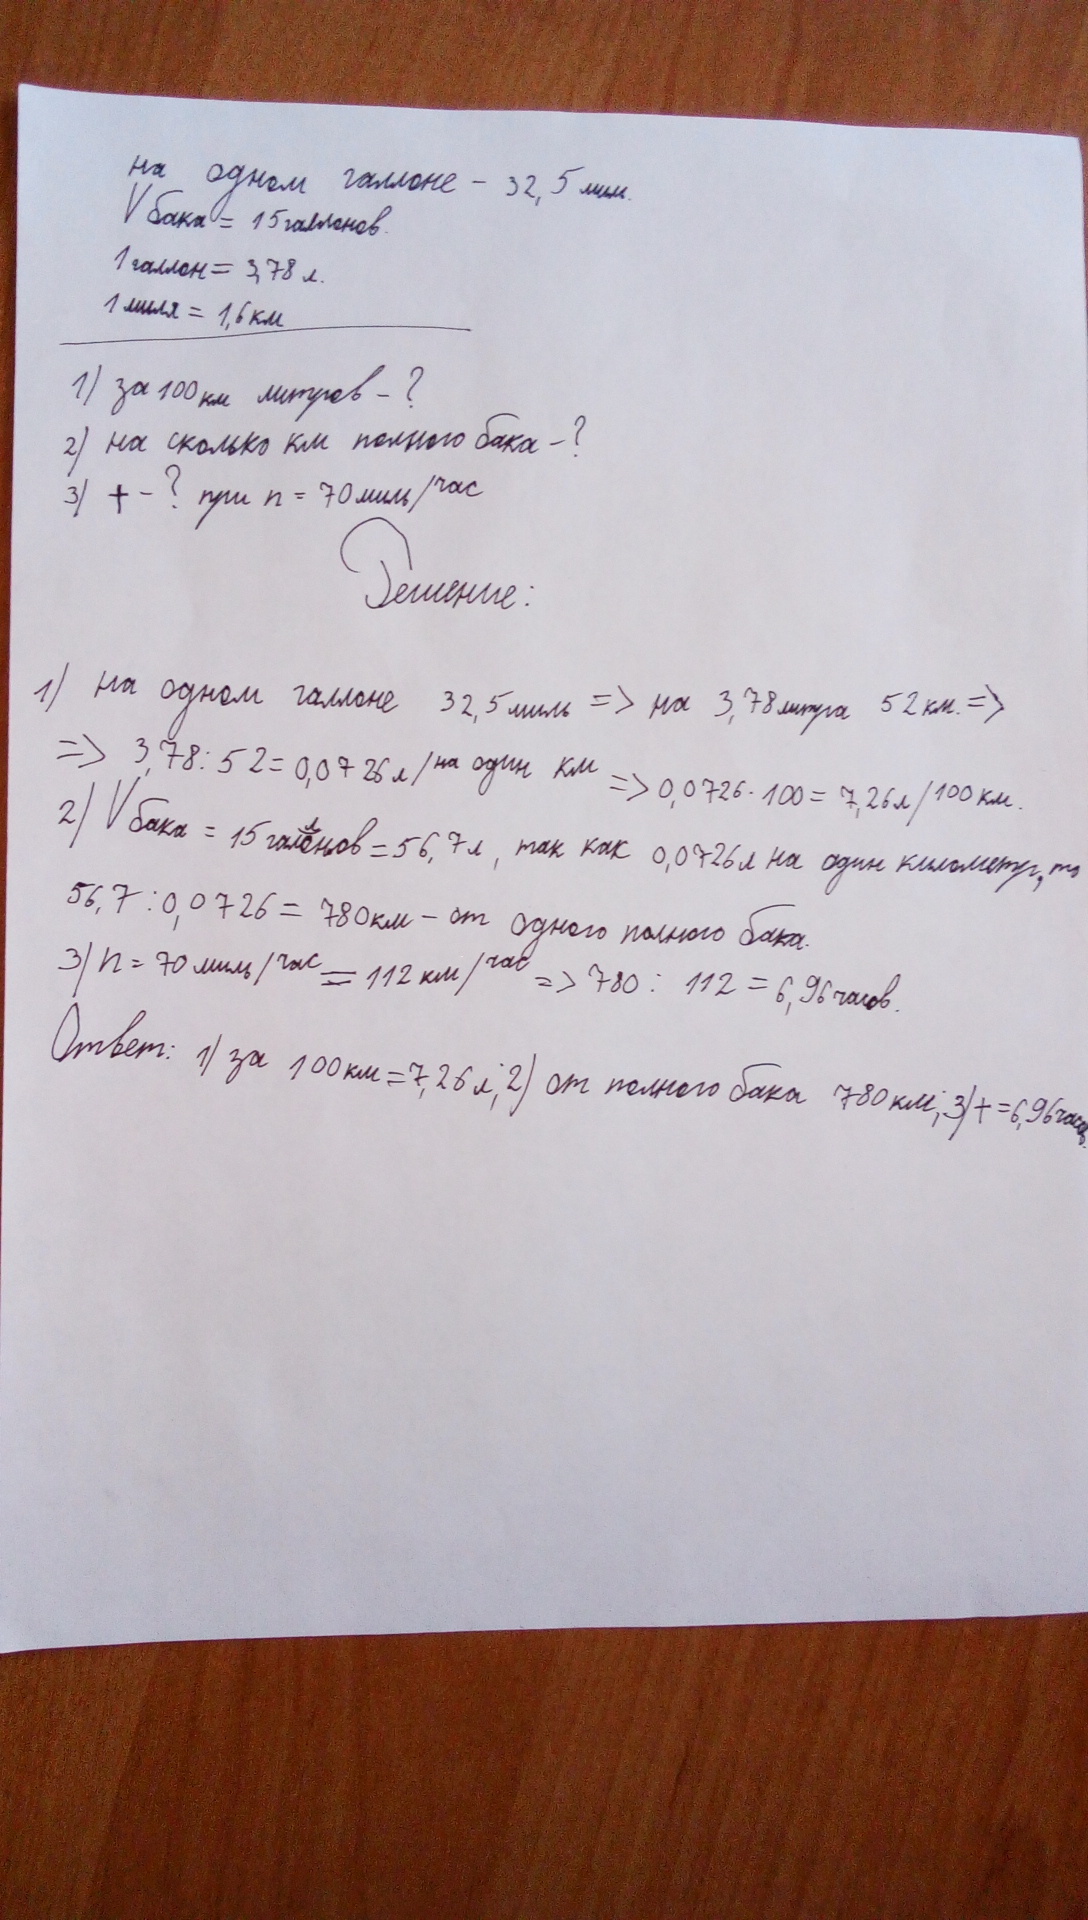 на одном галлоне - 32,5 мил.
V бака = 15 галлонов.
1 галлон = 3,78 л.
1 миля = 1,6 км
1) за 100 км литров - ?
2) на сколько км полного бака - ?
3) t - ? при n = 70 миль/час
Решение:
1) на одном галлоне 32,5 миль => на 3,78 литра 52 км. =>
=> 3,78 : 52 = 0,0726 л/на один км => 0,0726 · 100 = 7,26 л/100 км.
2) V бака = 15 галлонов = 56,7 л, так как 0,0726 л на один километр, то
56,7 : 0,0726 = 780 км - от одного полного бака.
3) n = 70 миль/час = 112 км/час => 780 : 112 = 6,96 часов.
Ответ: 1) за 100 км = 7,26 л; 2) от полного бака 780 км; 3) t = 6,96 часов.